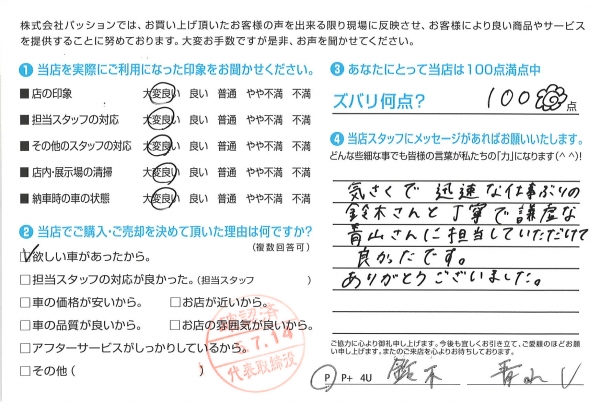 株式会社パッションでは、お買い上げ頂いたお客様の声を出来る限り現場に反映させ、お客様により良い商品やサービス
を提供することに努めております。大変お手数ですが是非、お声を聞かせてください。
❶ 当店を実際にご利用になった印象をお聞かせください。
■ 店の印象 大変良い 良い 普通 やや不満 不満
■ 担当スタッフの対応 大変良い 良い 普通 やや不満 不満
■ その他のスタッフの対応 大変良い 良い 普通 やや不満 不満
■ 店内・展示場の清掃 大変良い 良い 普通 やや不満 不満
■ 納車時の車の状態 大変良い 良い 普通 やや不満 不満
❷ 当店でご購入・ご売却を決めて頂いた理由は何ですか?
(複数回答可)
☑欲しい車があったから。
□担当スタッフの対応が良かった。(担当スタッフ )
□車の価格が安いから。 □お店が近いから。
□車の品質が良いから。 □お店の雰囲気が良いから。
□アフターサービスがしっかりしているから。
□その他( )
確認済
5.7.14
代表取締役
❸ あなたにとって当店は100点満点中
ズバリ何点? 100 点
❹ 当店スタッフにメッセージがあればお願いいたします。
どんな些細な事でも皆様の言葉が私たちの「力」になります(^^)!
気さくで 迅速な仕事ぶりの
鈴木さんと 丁寧で謙虚な
青山さんに担当していただけて
良かったです。
ありがとうございました。
ご協力に心より御礼申し上げます。今後も宜しくお引き立て、ご愛顧のほどお願
い申し上げます。またのご来店を心よりお待ちしております。
P P+ 4U 鈴木 青山